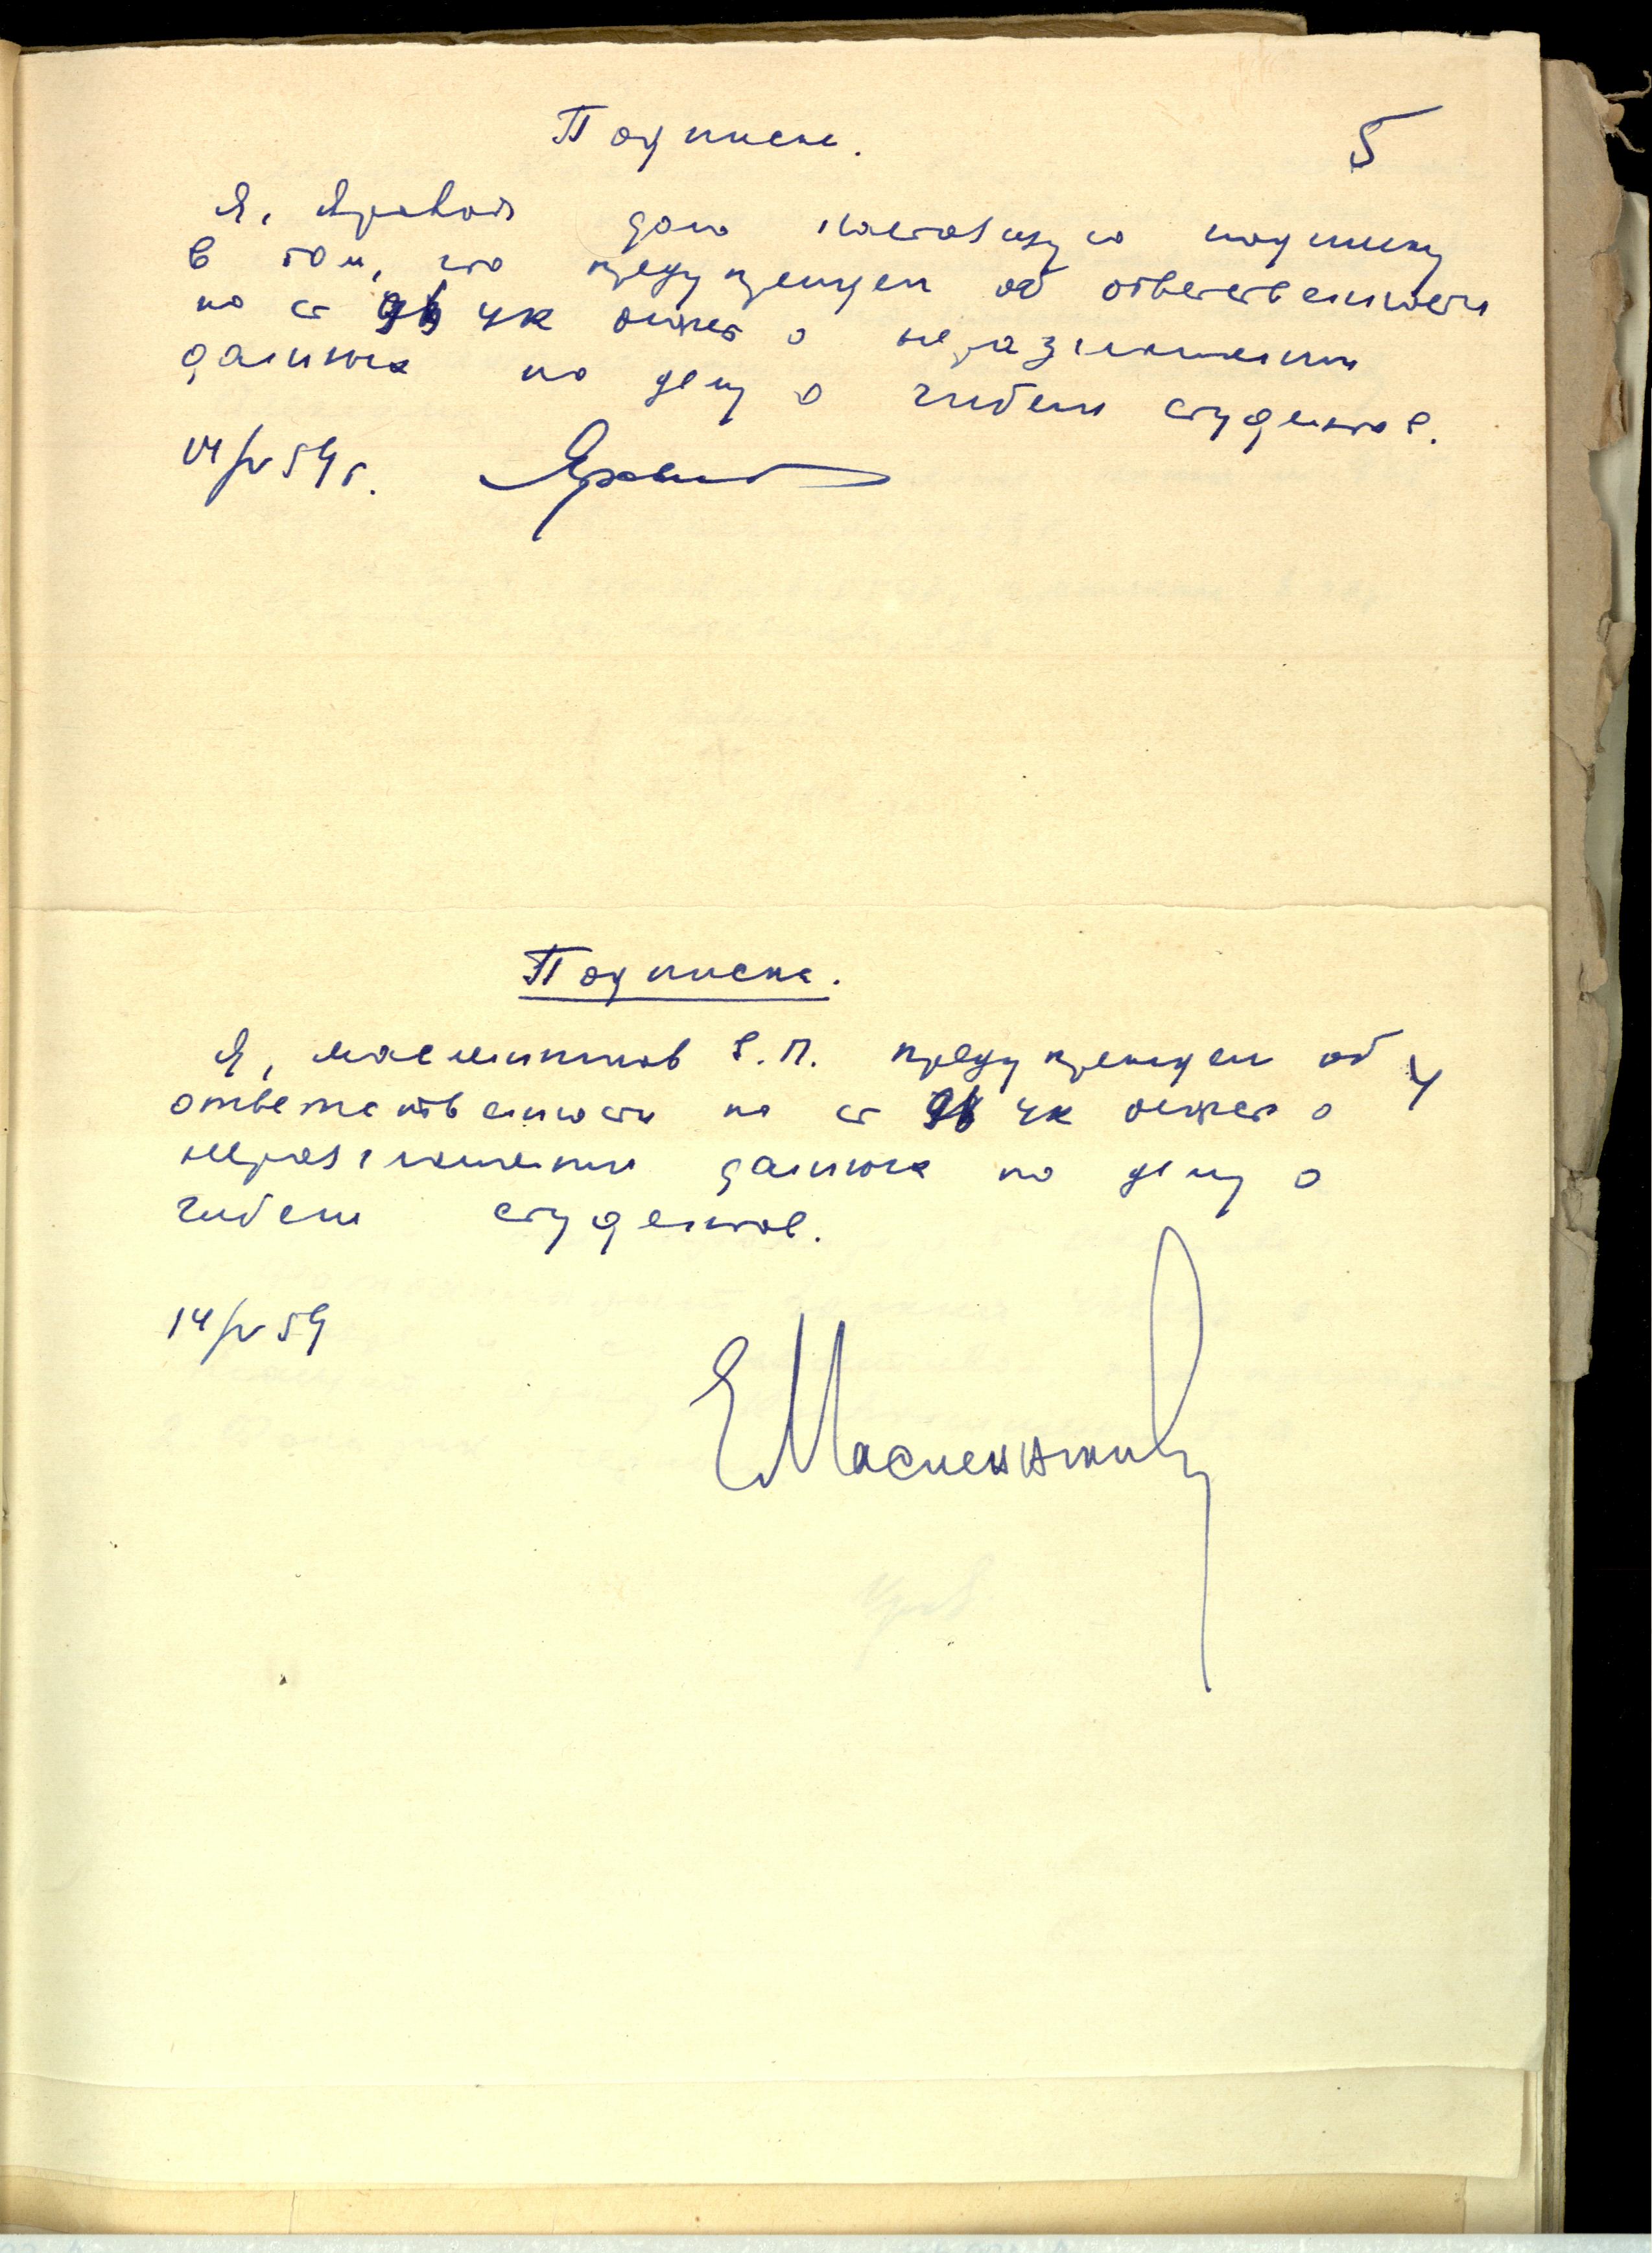 Подписка.
5
Я, Яровой даю настоящую подписку
в том, что предупрежден об ответственности
по ст 96 УК РСФСР о неразглашении
данных по делу о гибели студентов.
14/IV 59 г.
Подписка.
Я, Масленников Е.П. предупрежден об
4
ответственности по ст 96 УК РСФСР о
неразглашении данных по делу о
гибели студентов.
14/IV 59
ЕМасленников